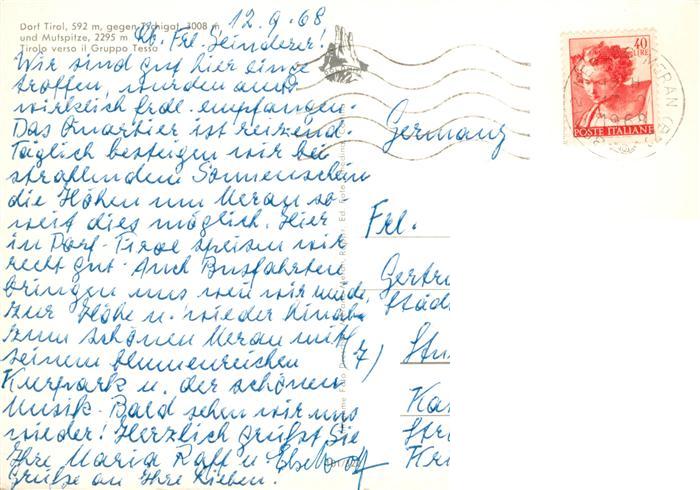 Dorf Tirol, 592 m, gegen Tschigat, 3008 m
und Mutspitze, 2295 m
Tirolo verso il Gruppo Tessa
12.9.68
Lb. Frl. Heinderer!
Wir sind gut hier einge
troffen, wurden auch
wirklich frdl. empfangen.
Das Quartier ist reizend.
Täglich besteigen wir bei
strahlendem Sonnenschein
die Höhen um Meran so-
weit dies möglich. Hier
in Dorf-Tirol speisen wir
recht gut. Auch Busfahrten
bringen uns wenn wir müde,
zur Höhe u. wieder hinab
zum schönen Meran mit
seinem blumenreichen
Kurpark u. der schönen
Musik. Bald sehen wir uns
wieder! Herzlich grüßt Sie
Ihre Maria Raff u.
Grüße an Ihre Lieben.
40
LIRE
POSTE ITALIANE
MERAN
Germany
Frl.
Gertru
Städ
(7) Stu
Ka
Str
Kr